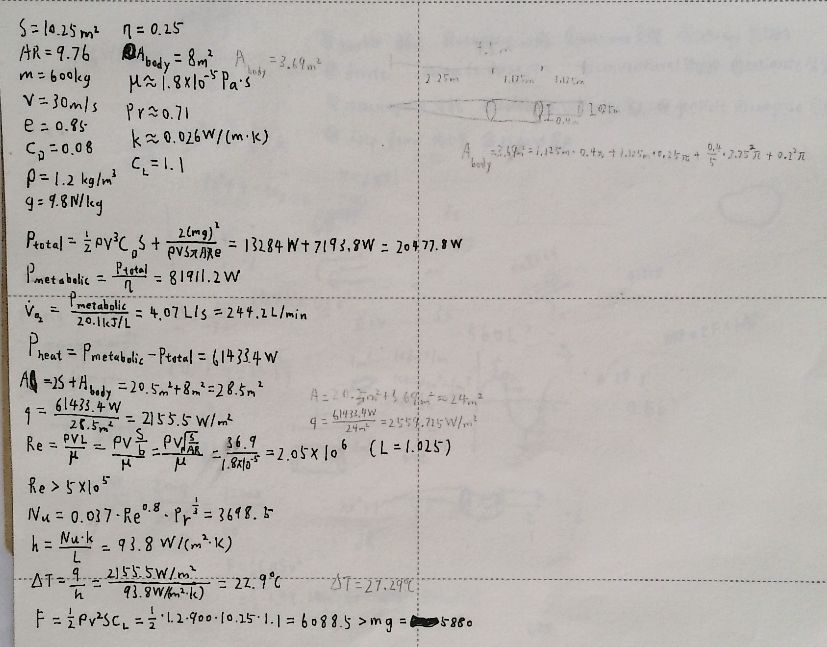 S=10.25m² η=0.25
AR=9.76 A_body=8m² A_body=3.69m²
m=600kg μ≈1.8×10⁻⁵Pa·s
V=30m/s Pr≈0.71
e=0.85 k≈0.026W/(m·K)
C_D=0.08 C_L=1.1
ρ=1.2 kg/m³
g=9.8N/kg
2.25m 1.125m 1.125m
0.4m
A_body=3.69m²=1.125m·0.4π+1.125m·0.25π+
P_total=½ρV³C_DS+2(mg)²/(ρVSπARe)=13284W+7193.8W=20477.8W
P_metabolic=P_total/η=81911.2W
V̇_O₂=P_metabolic/20.1kJ/L=4.07L/s=244.2L/min
P_heat=P_metabolic-P_total=61433.4W
A=2S+A_body=20.5m²+8m²=28.5m² A=20.5m²+3.69m²≈24m²
q=61433.4W/28.5m²=2155.5W/m² q=61433.4W/24m²=2559.725W/m²
Re=ρVL/μ=ρV(S/b)/μ=ρV√(S/AR)/μ=36.9/1.8×10⁻⁵=2.05×10⁶ (L=1.025)
Re>5×10⁵
Nu=0.037·Re^0.8·Pr^⅓=3698.5
h=Nu·k/L=93.8W/(m²·K)
ΔT=q/h=2155.5W/m²/93.8W/(m²·K)=22.9°C ΔT=27.29°C
F=½ρv²SC_L=½·1.2·900·10.25·1.1=6088.5>mg=5880